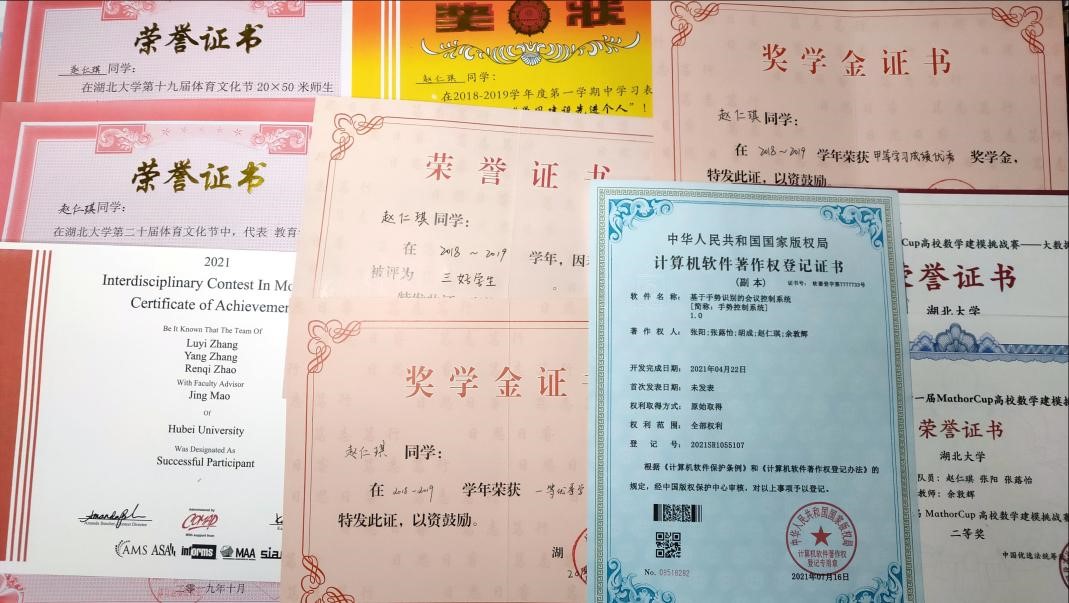 荣誉证书
赵仁琪 同学：
在湖北大学第十九届体育文化节20×50米师生
奖状
赵仁琪 同学：
在2018-2019学年度第一学期中学习表
奖学金证书
赵仁琪同学：
在 2018～2019 学年荣获 甲等学习成绩优秀 奖学金，
特发此证，以资鼓励。
荣誉证书
赵仁琪同学：
在湖北大学第二十届体育文化节中，代表 教育
荣誉证书
赵仁琪同学：
在 2018～2019 学年，因
被评为 三好学生 。
2021
Interdisciplinary Contest In Mo
Certificate of Achievemen
Be It Known That The Team Of
Luyi Zhang
Yang Zhang
Renqi Zhao
With Faculty Advisor
Jing Mao
Of
Hubei University
Was Designated As
Successful Participant
COMAP
AMS ASA informs MAA siam
二〇一九年十月
奖学金证
赵仁琪 同学：
在 2018-2019 学年荣获 一等优秀学
特发此证，以资鼓励。
湖
中华人民共和国国家版权局
计算机软件著作权登记证书
（副本）
证书号： 软著登字第7777733号
软件名称： 基于手势识别的会议控制系统
[简称：手势控制系统]
1.0
著作权人： 张阳;张露怡;胡成;赵仁琪;余敦辉
开发完成日期： 2021年04月22日
首次发表日期： 未发表
权利取得方式： 原始取得
权利范围： 全部权利
登记号： 2021SR1055107
根据《计算机软件保护条例》和《计算机软件著作权登记办法》的
规定，经中国版权保护中心审核，对以上事项予以登记。
中华人民共和国国家版权局
计算机软件著作权
登记专用章
No. 08516292
2021年07月16日
Cup高校数学建模挑战赛——大数据
荣誉证书
湖北大学
一届MathorCup高校数学建模挑
荣誉证书
湖北大学
队员：赵仁琪 张阳 张露怡
教师：余敦辉
MathorCup 高校数学建模挑战赛
二等奖
中国优选法统筹